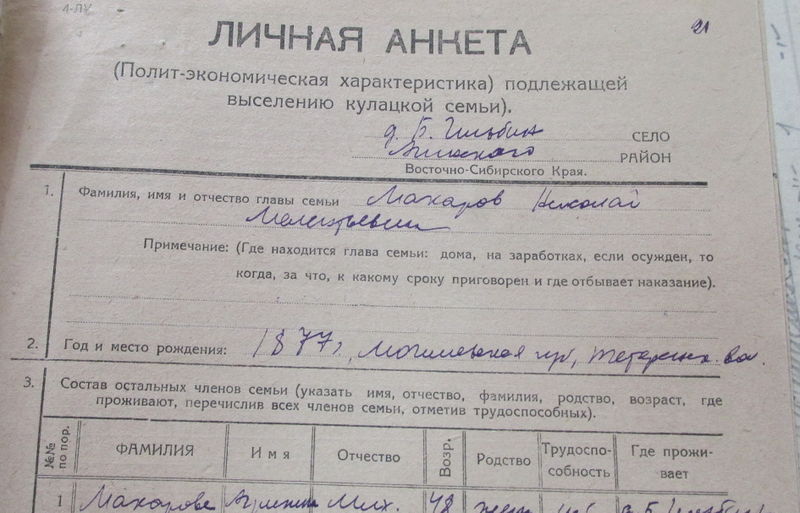 1-ЛУ
21
ЛИЧНАЯ АНКЕТА
(Полит-экономическая характеристика) подлежащей
выселению кулацкой семьи).
д. Б. Ильбин СЕЛО
РАЙОН
Восточно-Сибирского Края.
1. Фамилия, имя и отчество главы семьи Макаров Николай
Мелентьевич
Примечание: (Где находится глава семьи: дома, на заработках, если осужден, то
когда, за что, к какому сроку приговорен и где отбывает наказание).
2. Год и место рождения: 1877 г, Могилевская губ,
3. Состав остальных членов семьи (указать имя, отчество, фамилия, родство, возраст, где
проживают, перечислив всех членов семьи, отметив трудоспособных).
№№ по пор. ФАМИЛИЯ Имя Отчество Возр. Родство Трудоспо-собность Где прожи-вает
1 Макарова Мих. 48 жена д. Б. Ильбин